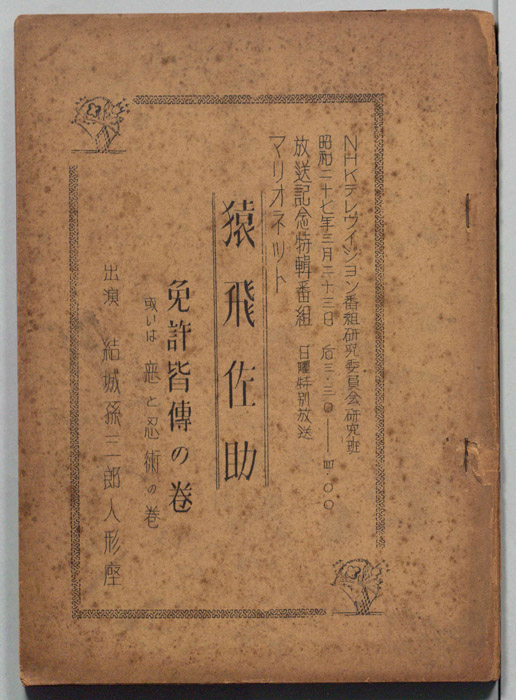 NHKテレヴイジヨン番組研究委員会研究班
昭和二十七年三月二十三日 后三・三〇――四・〇〇
放送記念特輯番組 日曜特別放送
マリオネット
猿飛佐助
免許皆傳の巻
或いは 恋と忍術の巻
出演 結城孫三郎人形座